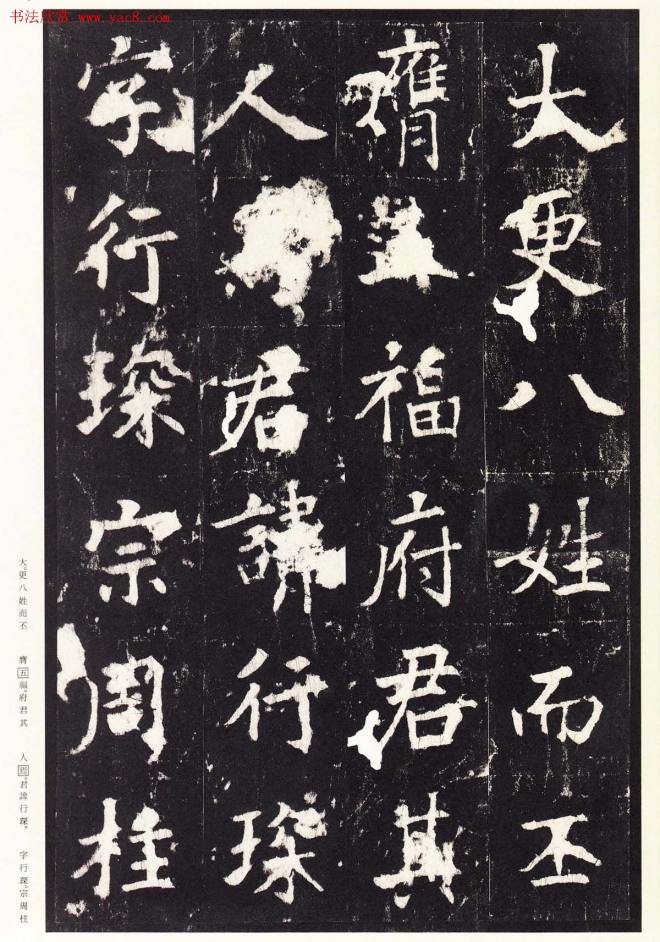 书法欣赏 www.yac8.com
大更八姓而丕
膺五福府君其
人君諱行琛
字行琛宗周柱
大。更八姓而丕 膺五福。府君其 人。君諱行琛。 字行琛。宗周柱